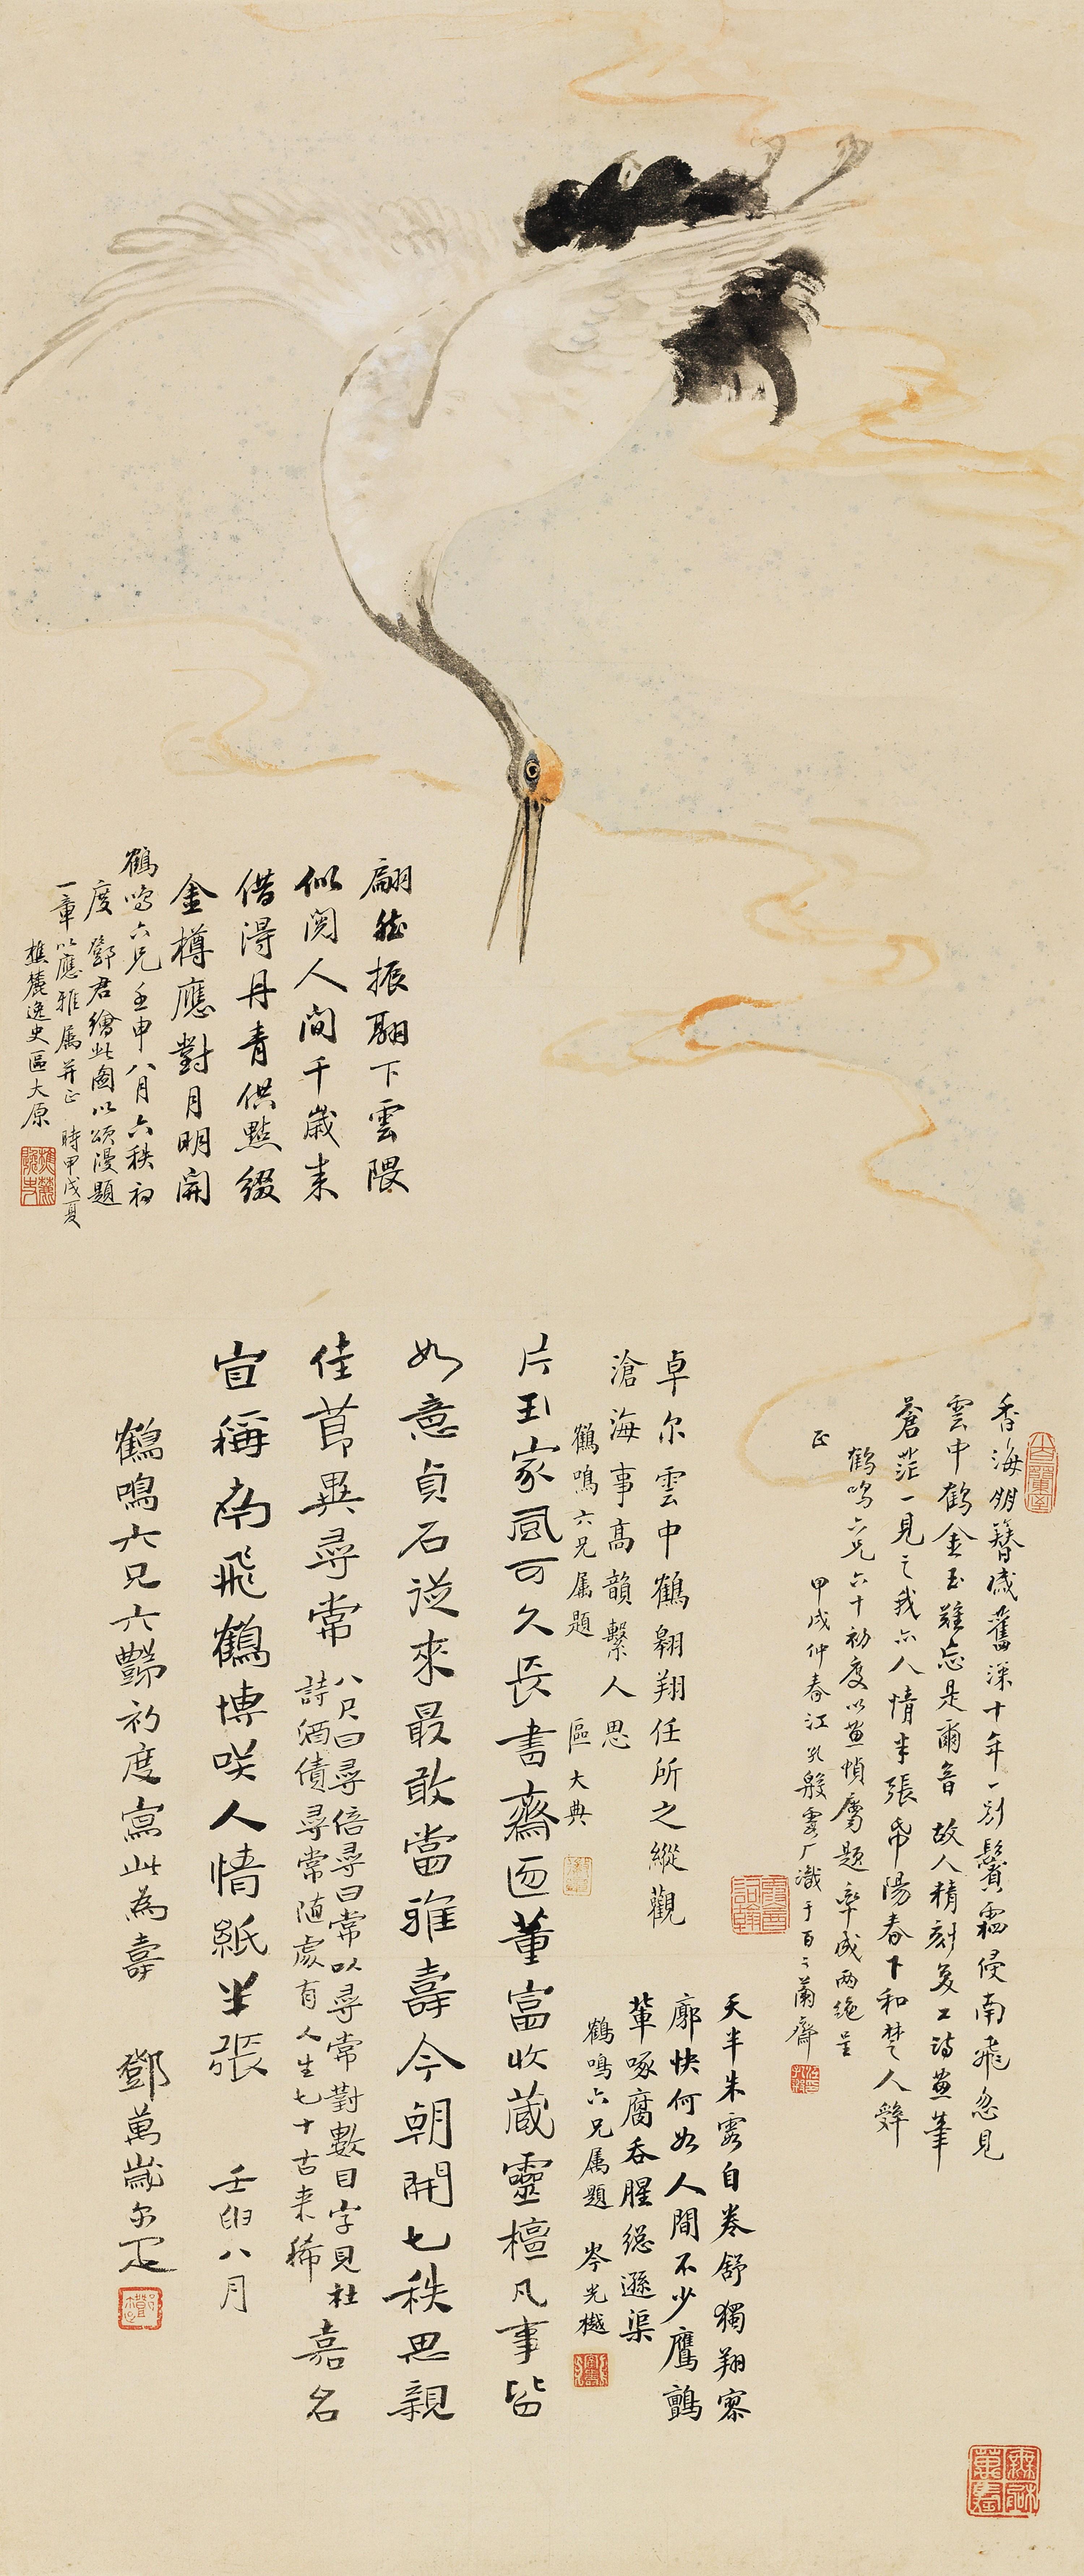 香海朋簪感舊深十年一別鬢霜侵南飛忽見
雲中鶴金玉難忘是爾音 故人精刻复工詩畫筆
蒼茫一見之我亦人情半張帋陽春下和楚人辤
鶴鳴六兄六十初度以畫幀屬題率成兩絶呈
正 甲戌仲春江孔殷霞厂識于百二蘭齋
天半朱霞自卷舒獨翔寥
廓快何如人間不少鷹鸇
輩啄腐吞腥總遜渠
鶴鳴六兄属題 岑光樾
卓尔雲中鶴翱翔任所之縱觀
滄海事高韻繫人思
鶴鳴六兄属題 區大典
片玉家風可久長書齋迴董富收藏靈檀凡事皆
如意貞石從來最敢當雅壽今朝開七秩思親
佳莭異尋常
八尺曰尋倍尋曰常以尋常對數目字見杜
詩酒債尋常随處有人生七十古来稀
嘉名
宜稱南飛鶴博咲人情紙半張 壬申八月
鶴鳴六兄六豒初度寫此為壽 鄧萬歲尔疋
翩然振翮下雲隈
似閲人間千歲来
借得丹青供點綴
金樽應對月明開
鶴鳴六兄壬申八月六秩初
度 鄧君繪此圖以頌漫題
一章以應雅属并正 時甲戌夏
樵麓逸史區大原